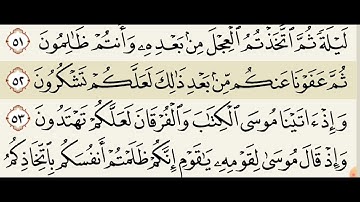 لَيۡلَةٗ ثُمَّ ٱتَّخَذۡتُمُ ٱلۡعِجۡلَ مِنۢ بَعۡدِهِۦ وَأَنتُمۡ ظَٰلِمُونَ ٥١
ثُمَّ عَفَوۡنَا عَنكُم مِّنۢ بَعۡدِ ذَٰلِكَ لَعَلَّكُمۡ تَشۡكُرُونَ ٥٢
وَإِذۡ ءَاتَيۡنَا مُوسَى ٱلۡكِتَٰبَ وَٱلۡفُرۡقَانَ لَعَلَّكُمۡ تَهۡتَدُونَ ٥٣
وَإِذۡ قَالَ مُوسَىٰ لِقَوۡمِهِۦ يَٰقَوۡمِ إِنَّكُمۡ ظَلَمۡتُمۡ أَنفُسَكُم بِٱتِّخَاذِكُمُ